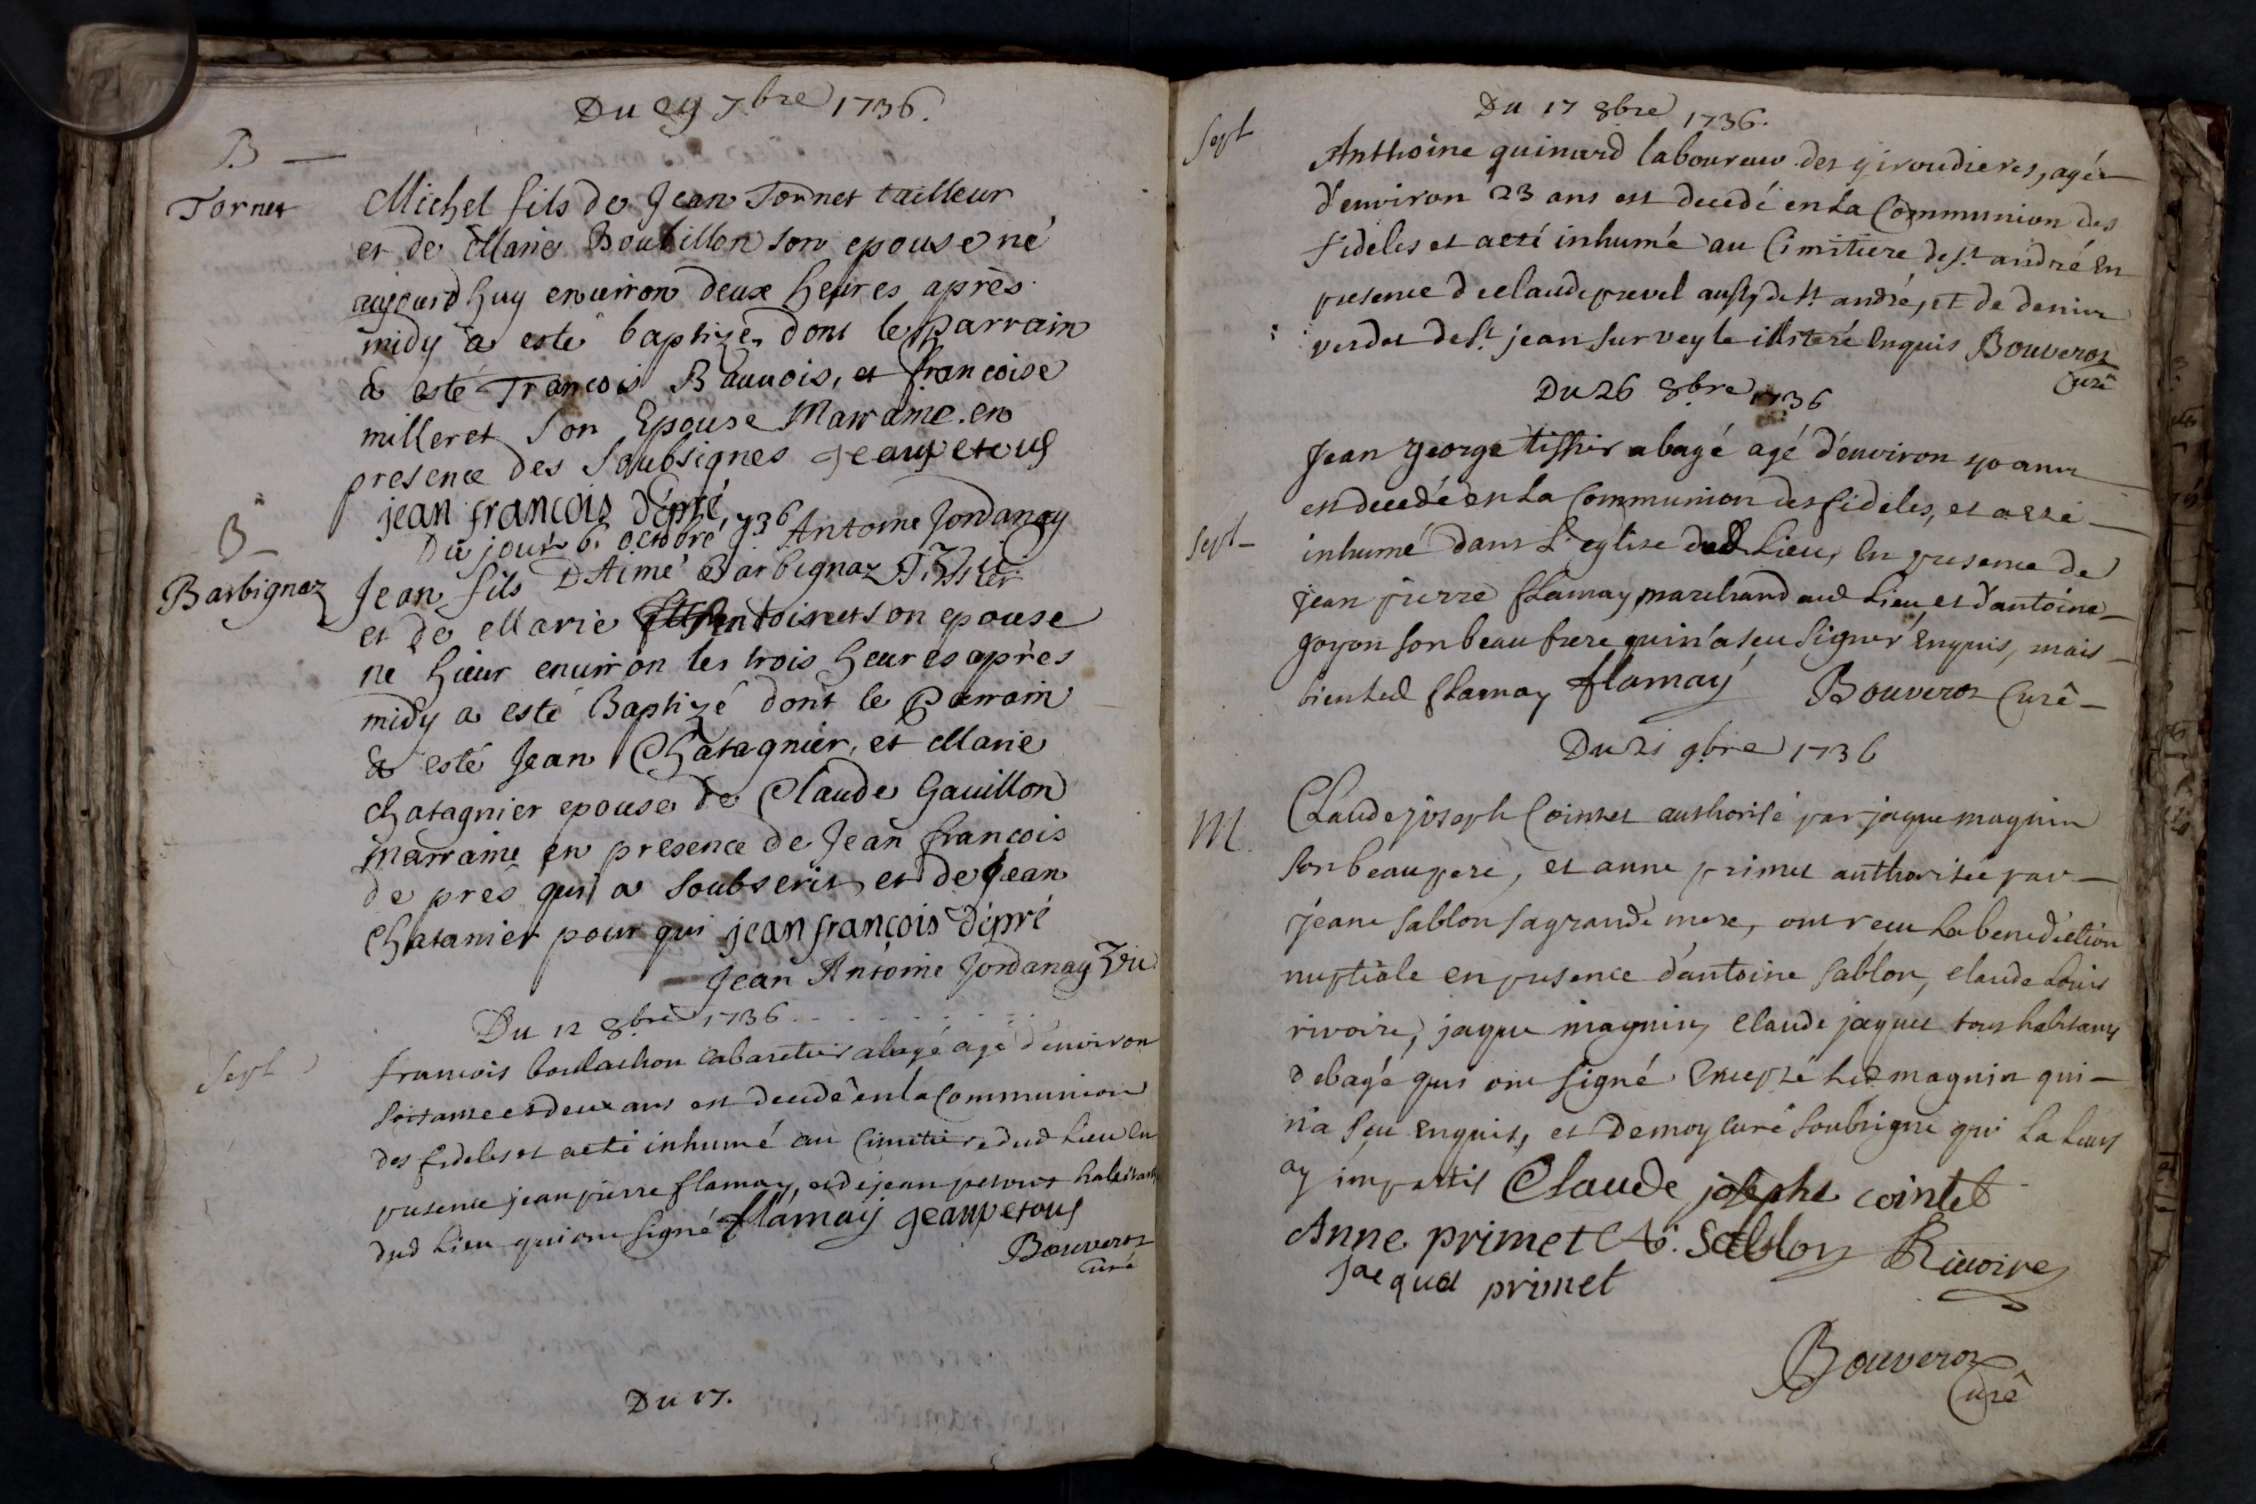 Du 29 7bre 1736.
B
Tornet
Michel fils de Jean Tornet tailleur
et de Marie Boutillon son epouse né
aujourdhuy environ deux heures après
midy a esté baptizé, dont le parrain
a esté Francois Bauvois, et françoise
milleret son Epouse Marrame. en
presence des soubsignes Jeanpetous
jean françois dépré
Antoine Jordanay
Vic
B
Barbignaz
Du jour 6. octobre 1736
Jean fils D'Aimé Barbignaz Tissier
et de Marie Antoinet son epouse
né hieur environ les trois heures après
midy a esté Baptizé dont le Parrain
a esté Jean Chatagnier, et Marie
Chatagnier epouse de Claude Gauillon
marraine en presence de Jean françois
de prés qui a soubscrit, et de Jean
Chatanier pour qui jean françois dépré
Jean Antoine Jordanay Vic
Du 12 8bre 1736
Sept
francois boulachon cabaretier abagé agé d'environ
soixante et deux ans est decedé en la communion
des fideles et a eté inhumé au cimetiere dud lieu en
presence jean pierre flamay, et de jean petous habitants
dud lieu qui ont signé flamay Jeanpetous
Bouveroz
curé
Du 17.
Du 17 8bre 1736.
Sept
Anthoine guinard laboureur des giroudieres, agé
d'environ 23 ans est decedé en la Communion des
fideles et a eté inhumé au Cimitiere de st andré en
presence de claude prevel aussy de st andré, et de denin
verdet de st jean sur veyle illiteré enquis Bouveroz
Curé
Du 26 8bre 1736
Sept
Jean george tissier abagé agé d'environ 40 ans
est decedé en la Communion des fideles, et a eté
inhumé dans L'eglise dud Lieu, en presence de
jean pierre flamay marchand aud Lieu et d'antoine
goyon son beau frere qui n'a seu signer enquis, mais
bien led flamay flamay Bouveroz Curé
Du 21 9bre 1736
M
Claude joseph Cointet authorisé par jaque magnin
son beaupere, et anne primet authorisée par
jeane sablon sa grande mere, ont reçu la benediction
nuptiale en presence d'antoine sablon, claude Louis
rivoire, jaque magnin, claude jaques tous habitans
de bagé qui ont signé Excepté Led magnin qui
n'a seu enquis, et de moy curé soubsigné qui La Leur
ay impartis Claude josephe cointet
Anne primet A. Sablon Rivoire
jacque primet
Bouveroz
Curé